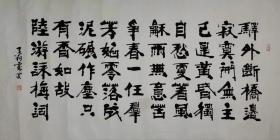 驛外斷橋邊
寂寞開無主
已是黃昏獨
自愁更著風
和雨無意苦
爭春一任羣
芳妒零落成
泥碾作塵只
有香如故
陸游詠梅詞